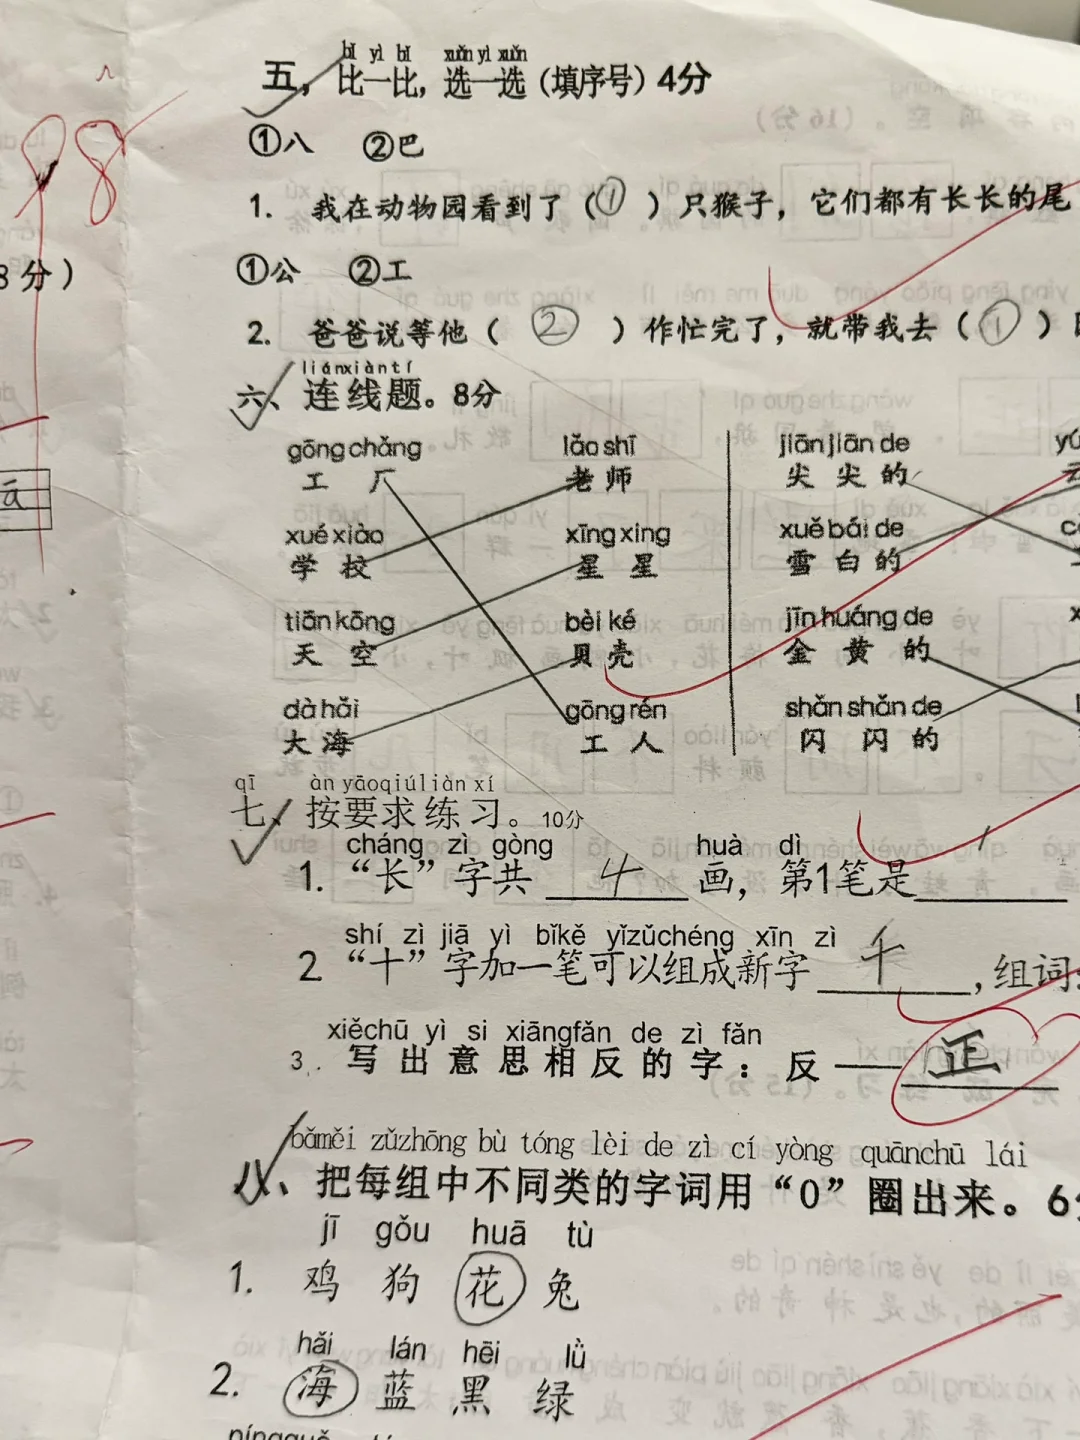 98
bǐ yì bǐ xuǎn yi xuǎn
五，比一比，选一选（填序号）4分
①八 ②巴
1. 我在动物园看到了（①）只猴子，它们都有长长的尾
8分）
①公 ②工
2. 爸爸说等他（②）作忙完了，就带我去（①）
liánxiàntí
六、连线题。8分
gōngchǎng lǎoshī jiānjiān de
工厂 老师 尖尖的
xuéxiào xīngxing xuěbái de
学校 星星 雪白的
tiānkōng bèiké jīnhuáng de
天空 贝壳 金黄的
dàhǎi gōngrén shǎnshǎn de
大海 工人 闪闪的
qī àn yāoqiúliànxí
七、按要求练习。10分
cháng zì gòng huà dì
1. “长”字共 4 画，第1笔是
shí zì jiā yì bǐkě yǐzǔchéng xīn zì
2 “十”字加一笔可以组成新字 千，组词：
xiěchū yì si xiāngfǎn de zì fǎn
3. 写出意思相反的字：反——正
bǎměi zǔzhōng bù tóng lèi de zì cí yòng quānchū lái
八、把每组中不同类的字词用“0”圈出来。6
jī gǒu huā tù
1. 鸡 狗 花 兔
hǎi lán hēi lǜ
2. 海 蓝 黑 绿